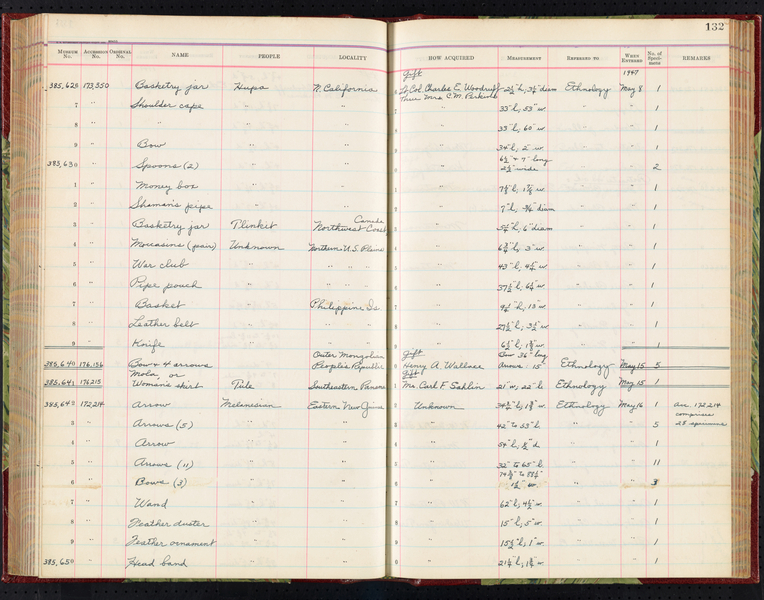 132
Museum No. Accession No. Original No. NAME PEOPLE LOCALITY HOW ACQUIRED Measurement Referred to When Entered No. of Specimens REMARKS
Gift 1947
385,628 173,350 Basketry jar Hupa N. California 6 Lt. Col. Charles E. Woodruff 2½" h, 3½" diam Ethnology May 8 1
thru Mrs. C.M. Perkins
7 " Shoulder cape " " 7 " 33" l, 53" w. " " 1
8 " " " " 8 " 33" l, 60" w " " 1
9 " Bow " " 9 " 34" l, 2" w. " " 1
6½" & 7" long
385,630 " Spoons (2) " " 0 " 2½" wide " " 2
1 " Money box " " 1 " 7⅞" l, 1⅞" w. " " 1
2 " Shaman's pipe " " 2 " 7" l, diam " " 1
Canada
3 " Basketry jar Tlinket Northwest Coast 3 " 5¼" h, 6" diam " " 1
4 " Moccasins (pair) Unknown Northern U.S. Plains 4 " 6¾" l, 3" w. " " 1
5 " War club " " " " 5 " 43" l, 4½" w. " " 1
6 " Pipe pouch " " " " 6 " 37½" l, 6½" w. " " 1
7 " Basket " Philippine Is. 7 " 9½" l, 13" w. " " 1
8 " Leather belt " " 8 " 27½" l, 3½" w. " " 1
9 " Knife " " 9 " 6½" l, 1⅜" w. " " 1
Outer Mongolian Gift Bow 36" long
385,640 176,156 Bow & 4 arrows People's Republic 0 Henry A. Wallace Arrows 15" Ethnology May 15 5
Mola, or Gift
385,641 176,215 Woman's skirt Tule Southeastern Panama 1 Mrs. Carl F. Sahlin 21" w, 22" l Ethnology May 15 1
385,642 172,214 Arrow Melanesian Eastern New Guinea 2 Unknown 34½" l, 1⅜" w. Ethnology May 16 1 Acc. 172,214
comprises
3 " Arrows (5) " " 3 " 42" to 53" l. " " 5 28 specimens
4 " Arrow " " 4 " 54" l, ½" d. " " 1
5 " Arrows (11) " " 5 " 32" to 65" l. " " 11
74¾" to 88½"
6 " Bows (3) " " 6 " 1½" w. " " 3
7 " Wand " " 7 " 62" l, 4½" w. " " 1
8 " Feather duster " " 8 " 15" l, 5" w. " " 1
9 " Feather ornament " " 9 " 15½" l, 1" w. " " 1
385,650 " Head band " " 0 " 21¼" l, 1⅝" w. " " 1